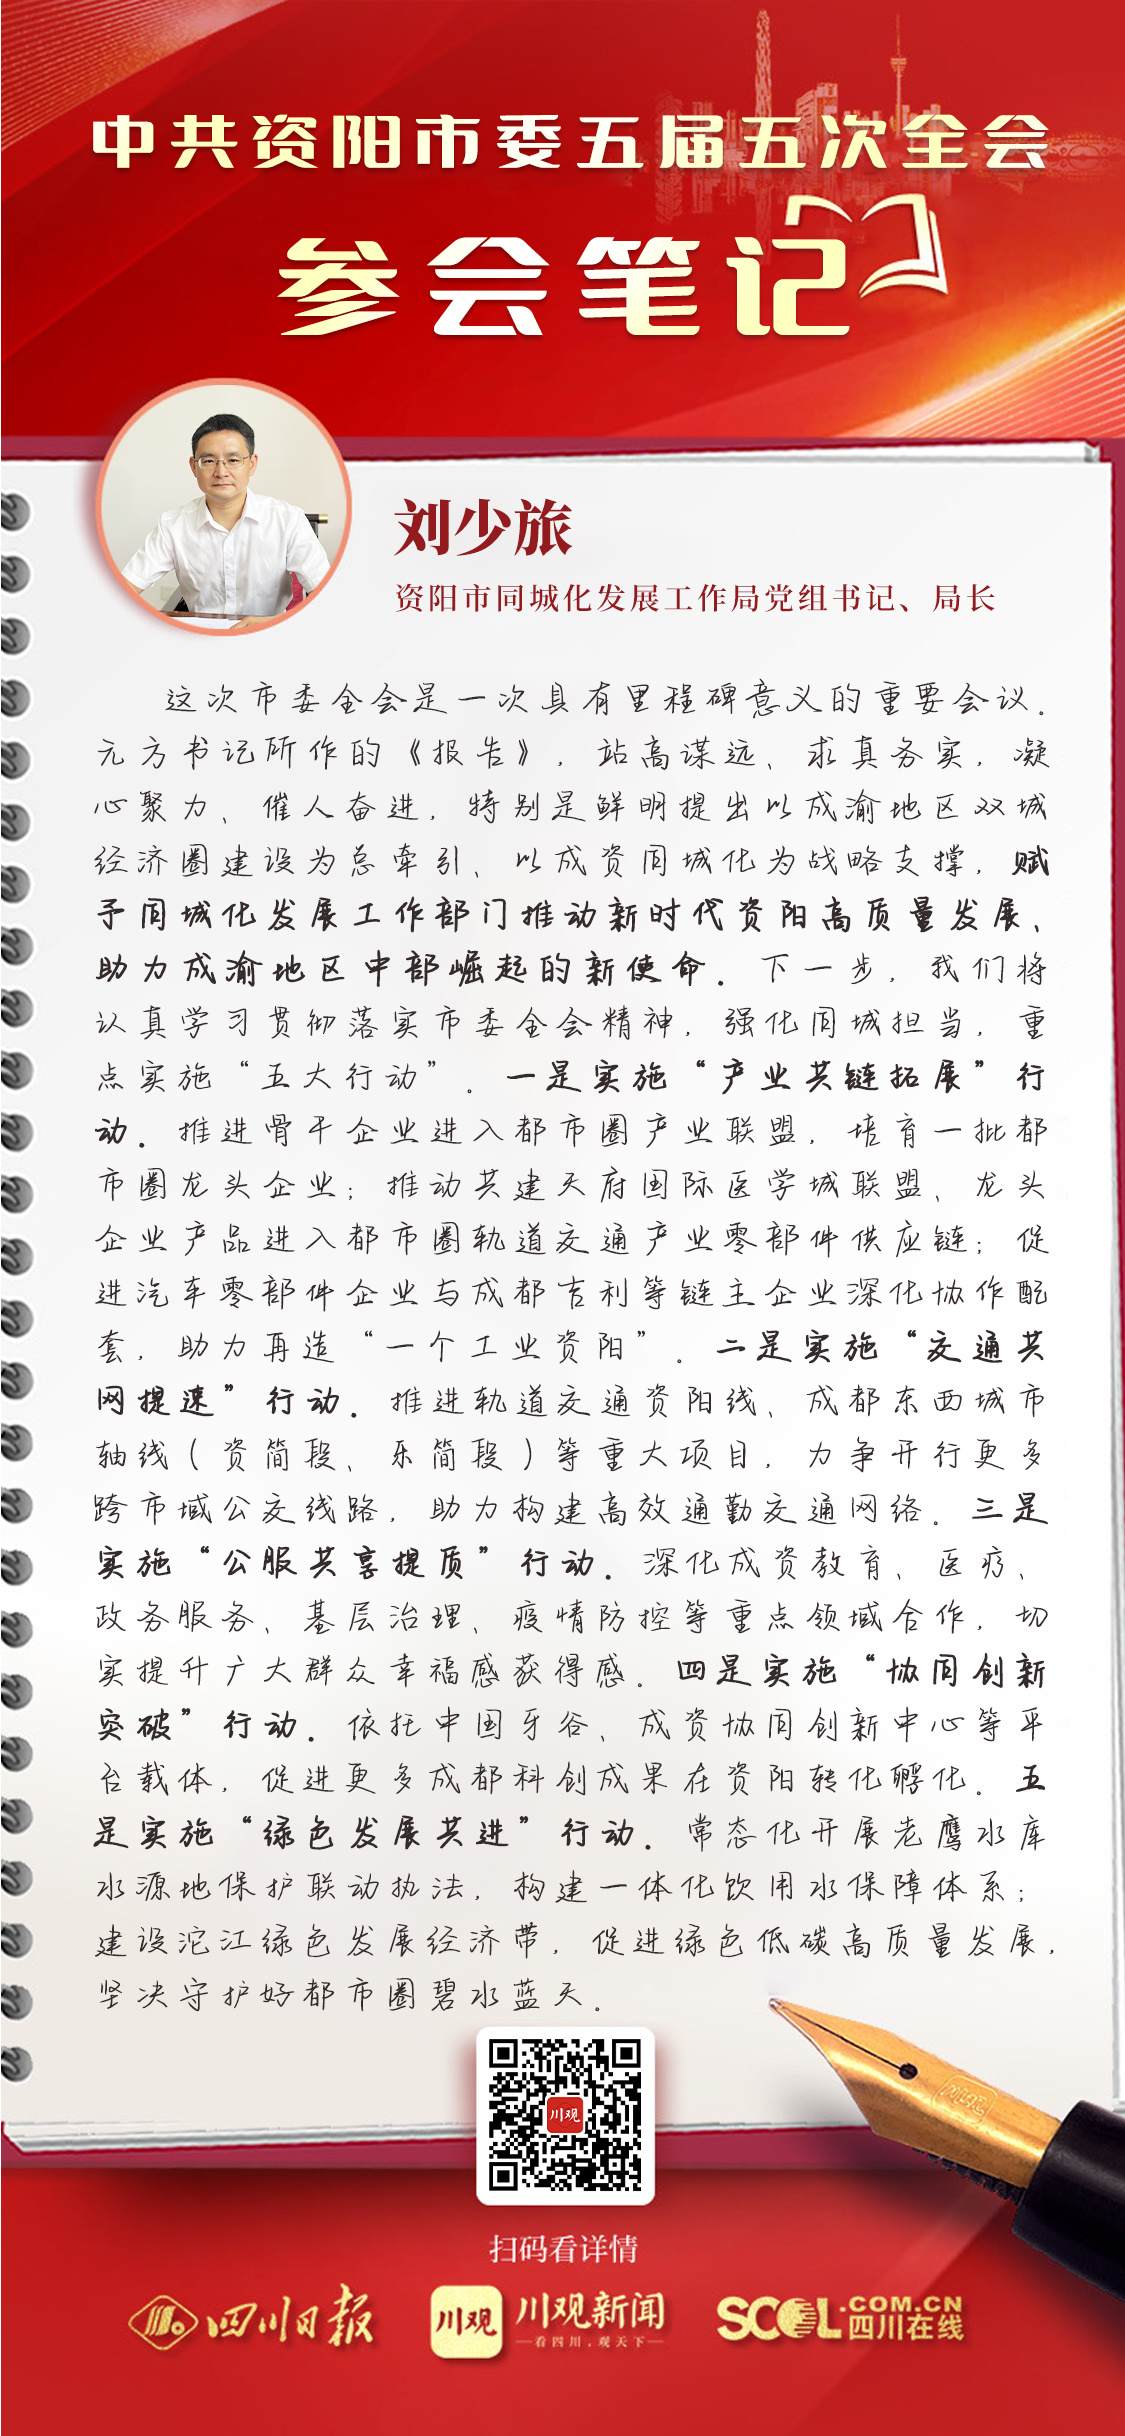 中共资阳市委五届五次全会
参会笔记
刘少旅
资阳市同城化发展工作局党组书记、局长
这次市委全会是一次具有里程碑意义的重要会议。
元方书记所作的《报告》，站高谋远、求真务实，凝
心聚力、催人奋进，特别是鲜明提出以成渝地区双城
经济圈建设为总牵引、以成资同城化为战略支撑，赋
予同城化发展工作部门推动新时代资阳高质量发展、
助力成渝地区中部崛起的新使命。下一步，我们将
认真学习贯彻落实市委全会精神，强化同城担当，重
点实施“五大行动”。一是实施“产业共链拓展”行
动。推进骨干企业进入都市圈产业联盟，培育一批都
市圈龙头企业；推动共建天府国际医学城联盟、龙头
企业产品进入都市圈轨道交通产业零部件供应链；促
进汽车零部件企业与成都吉利等链主企业深化协作配
套，助力再造“一个工业资阳”。二是实施“交通共
网提速”行动。推进轨道交通资阳线、成都东西城市
轴线（资简段、乐简段）等重大项目，力争开行更多
跨市域公交线路，助力构建高效通勤交通网络。三是
实施“公服共享提质”行动。深化成资教育、医疗、
政务服务、基层治理、疫情防控等重点领域合作，切
实提升广大群众幸福感获得感。四是实施“协同创新
突破”行动。依托中国牙谷、成资协同创新中心等平
台载体，促进更多成都科创成果在资阳转化孵化。五
是实施“绿色发展共进”行动。常态化开展老鹰水库
水源地保护联动执法，构建一体化饮用水保障体系；
建设沱江绿色发展经济带，促进绿色低碳高质量发展，
坚决守护好都市圈碧水蓝天。
川观
扫码看详情
四川日报
川观 川观新闻
看四川，观天下
SCOL.COM.CN
四川在线